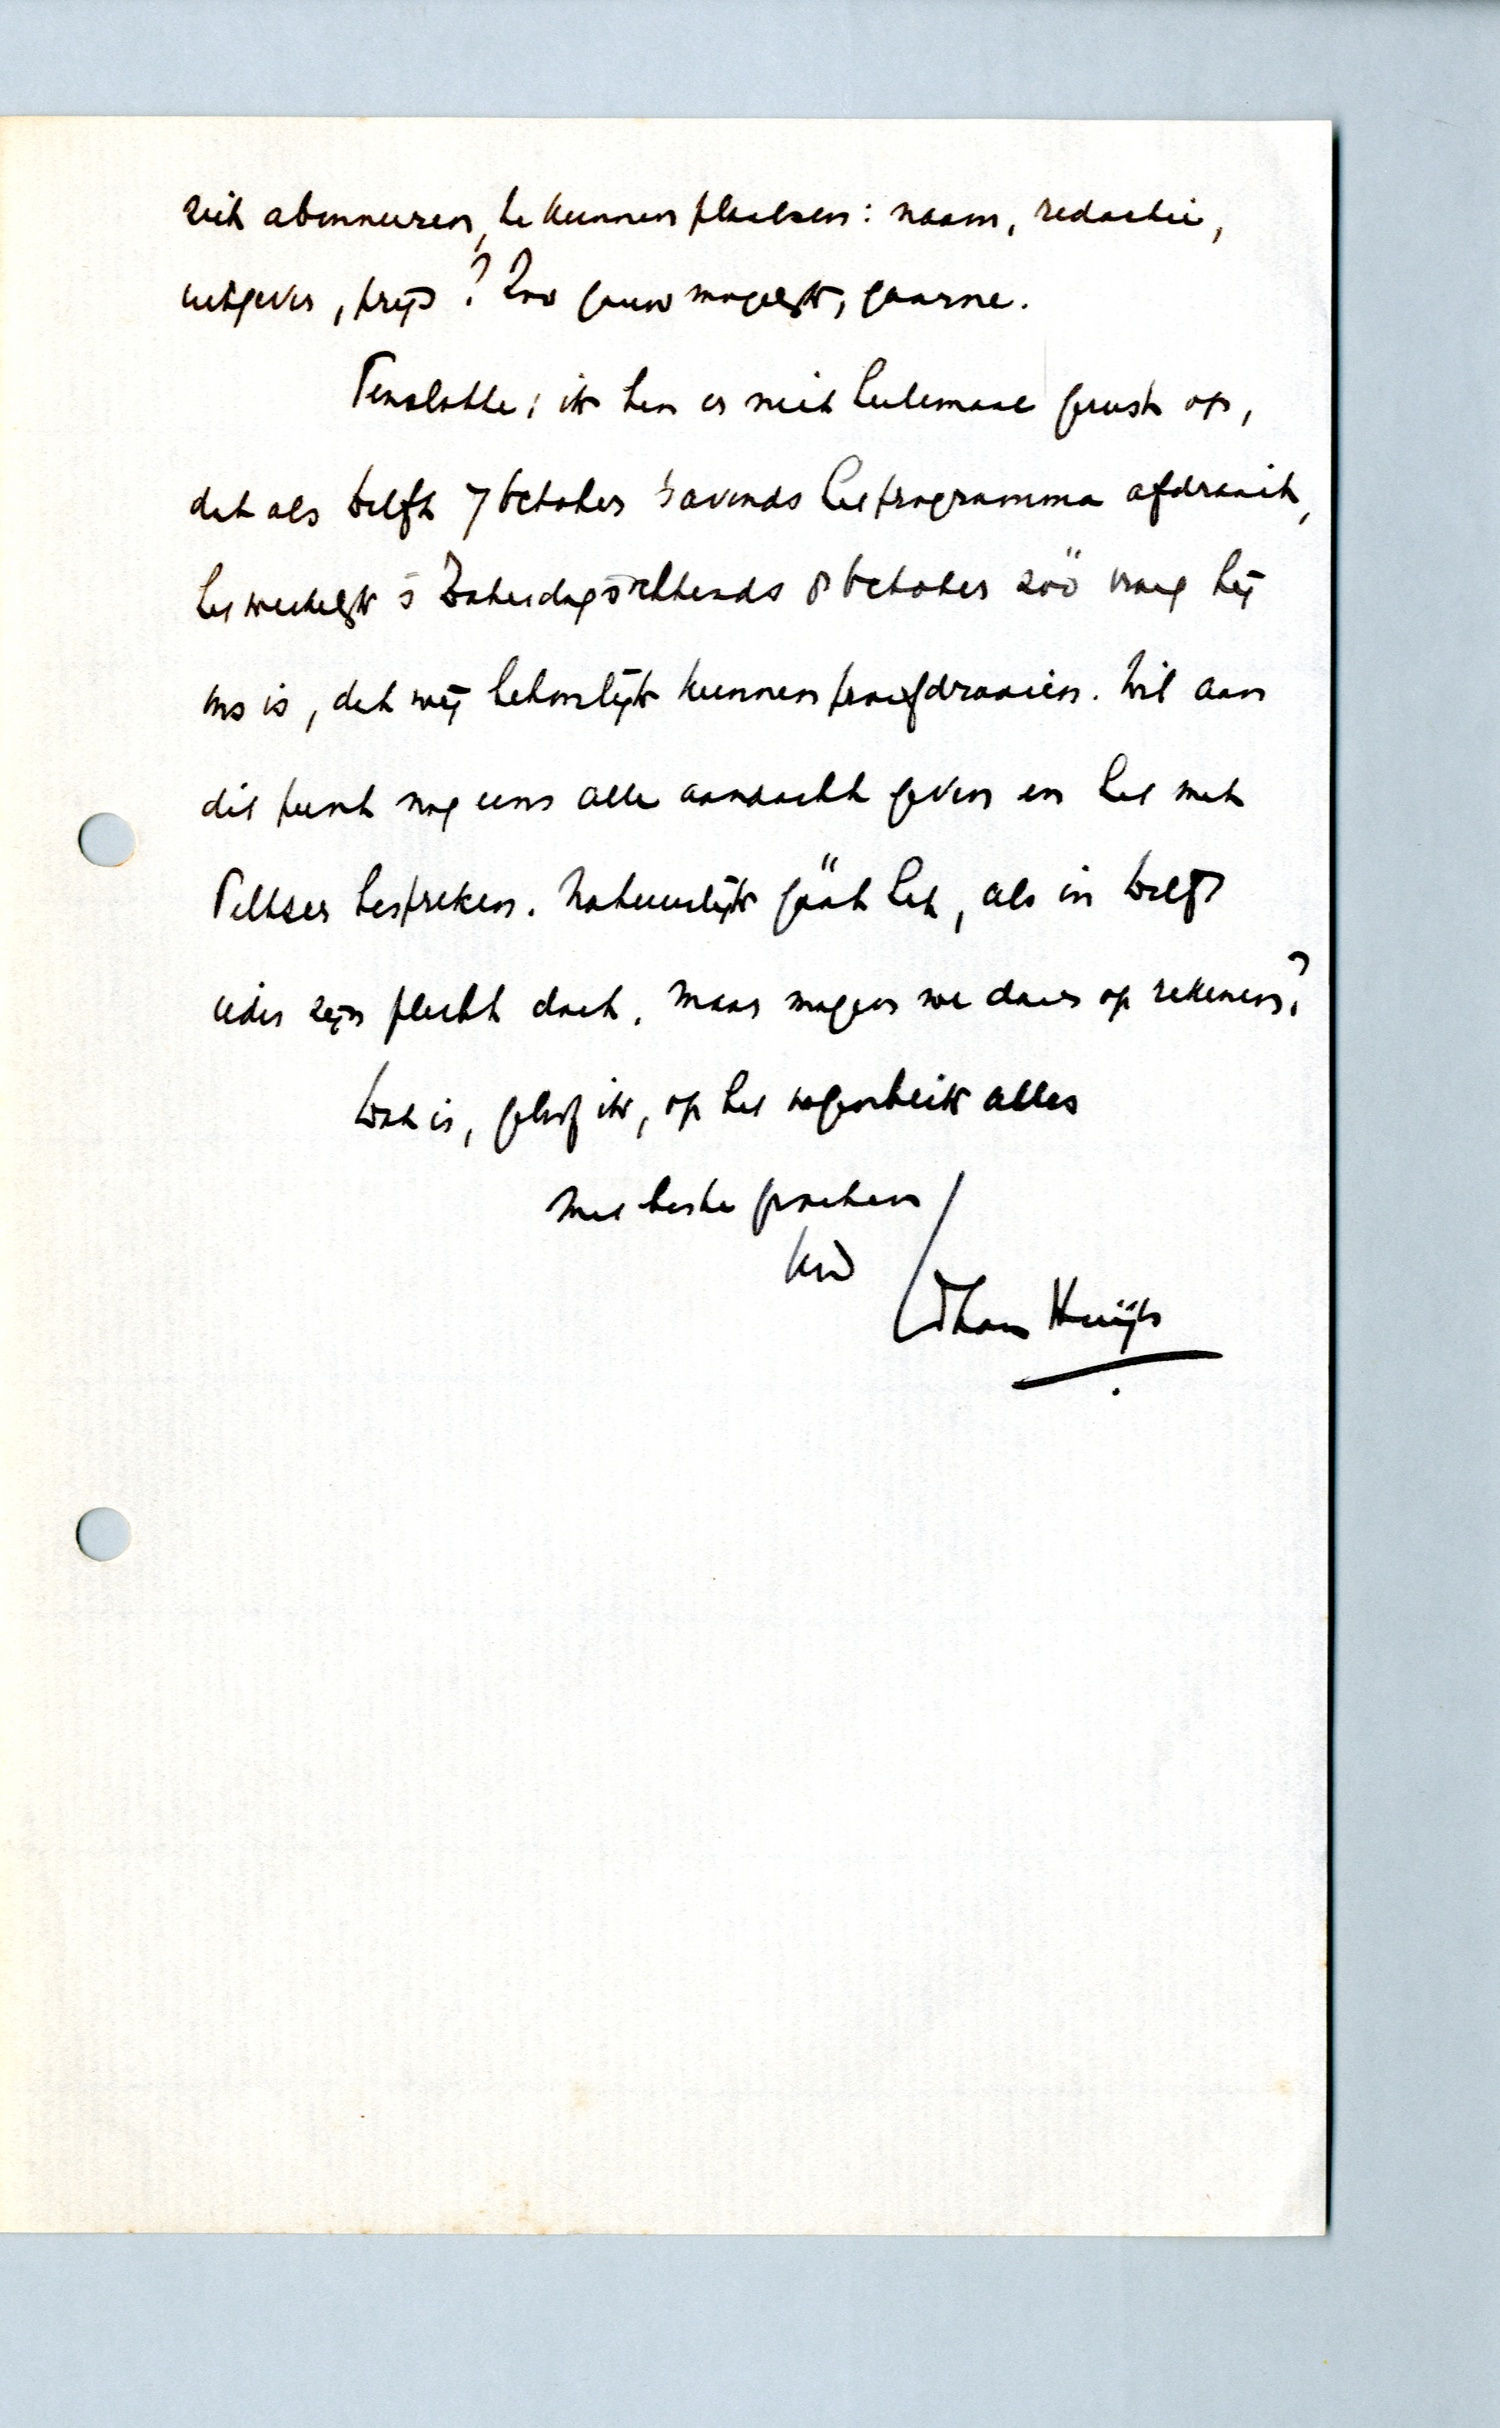 zich abonneeren, te kunnen plaatsen: naam, redactie,
uitgever, prijs? Zoo gauw mogelijk, gaarne.
Tenslotte; ik ben er niet heelemaal gerust op,
dat als Delft 7 October 's avonds het programma afdraait,
het werkelijk 's Zaterdagsochtends 8 October zóó vroeg bij
ons is, dat wij behoorlijk kunnen proefdraaien. Wil aan
dit punt nog eens alle aandacht geven en het met
Peltser bespreken. Natuurlijk gáát het, als in Delft
ieder zijn plicht doet. Maar mogen we daar op rekenen?
Dat is, geloof ik, op het oogenblik alles
Met beste groeten
Huijts